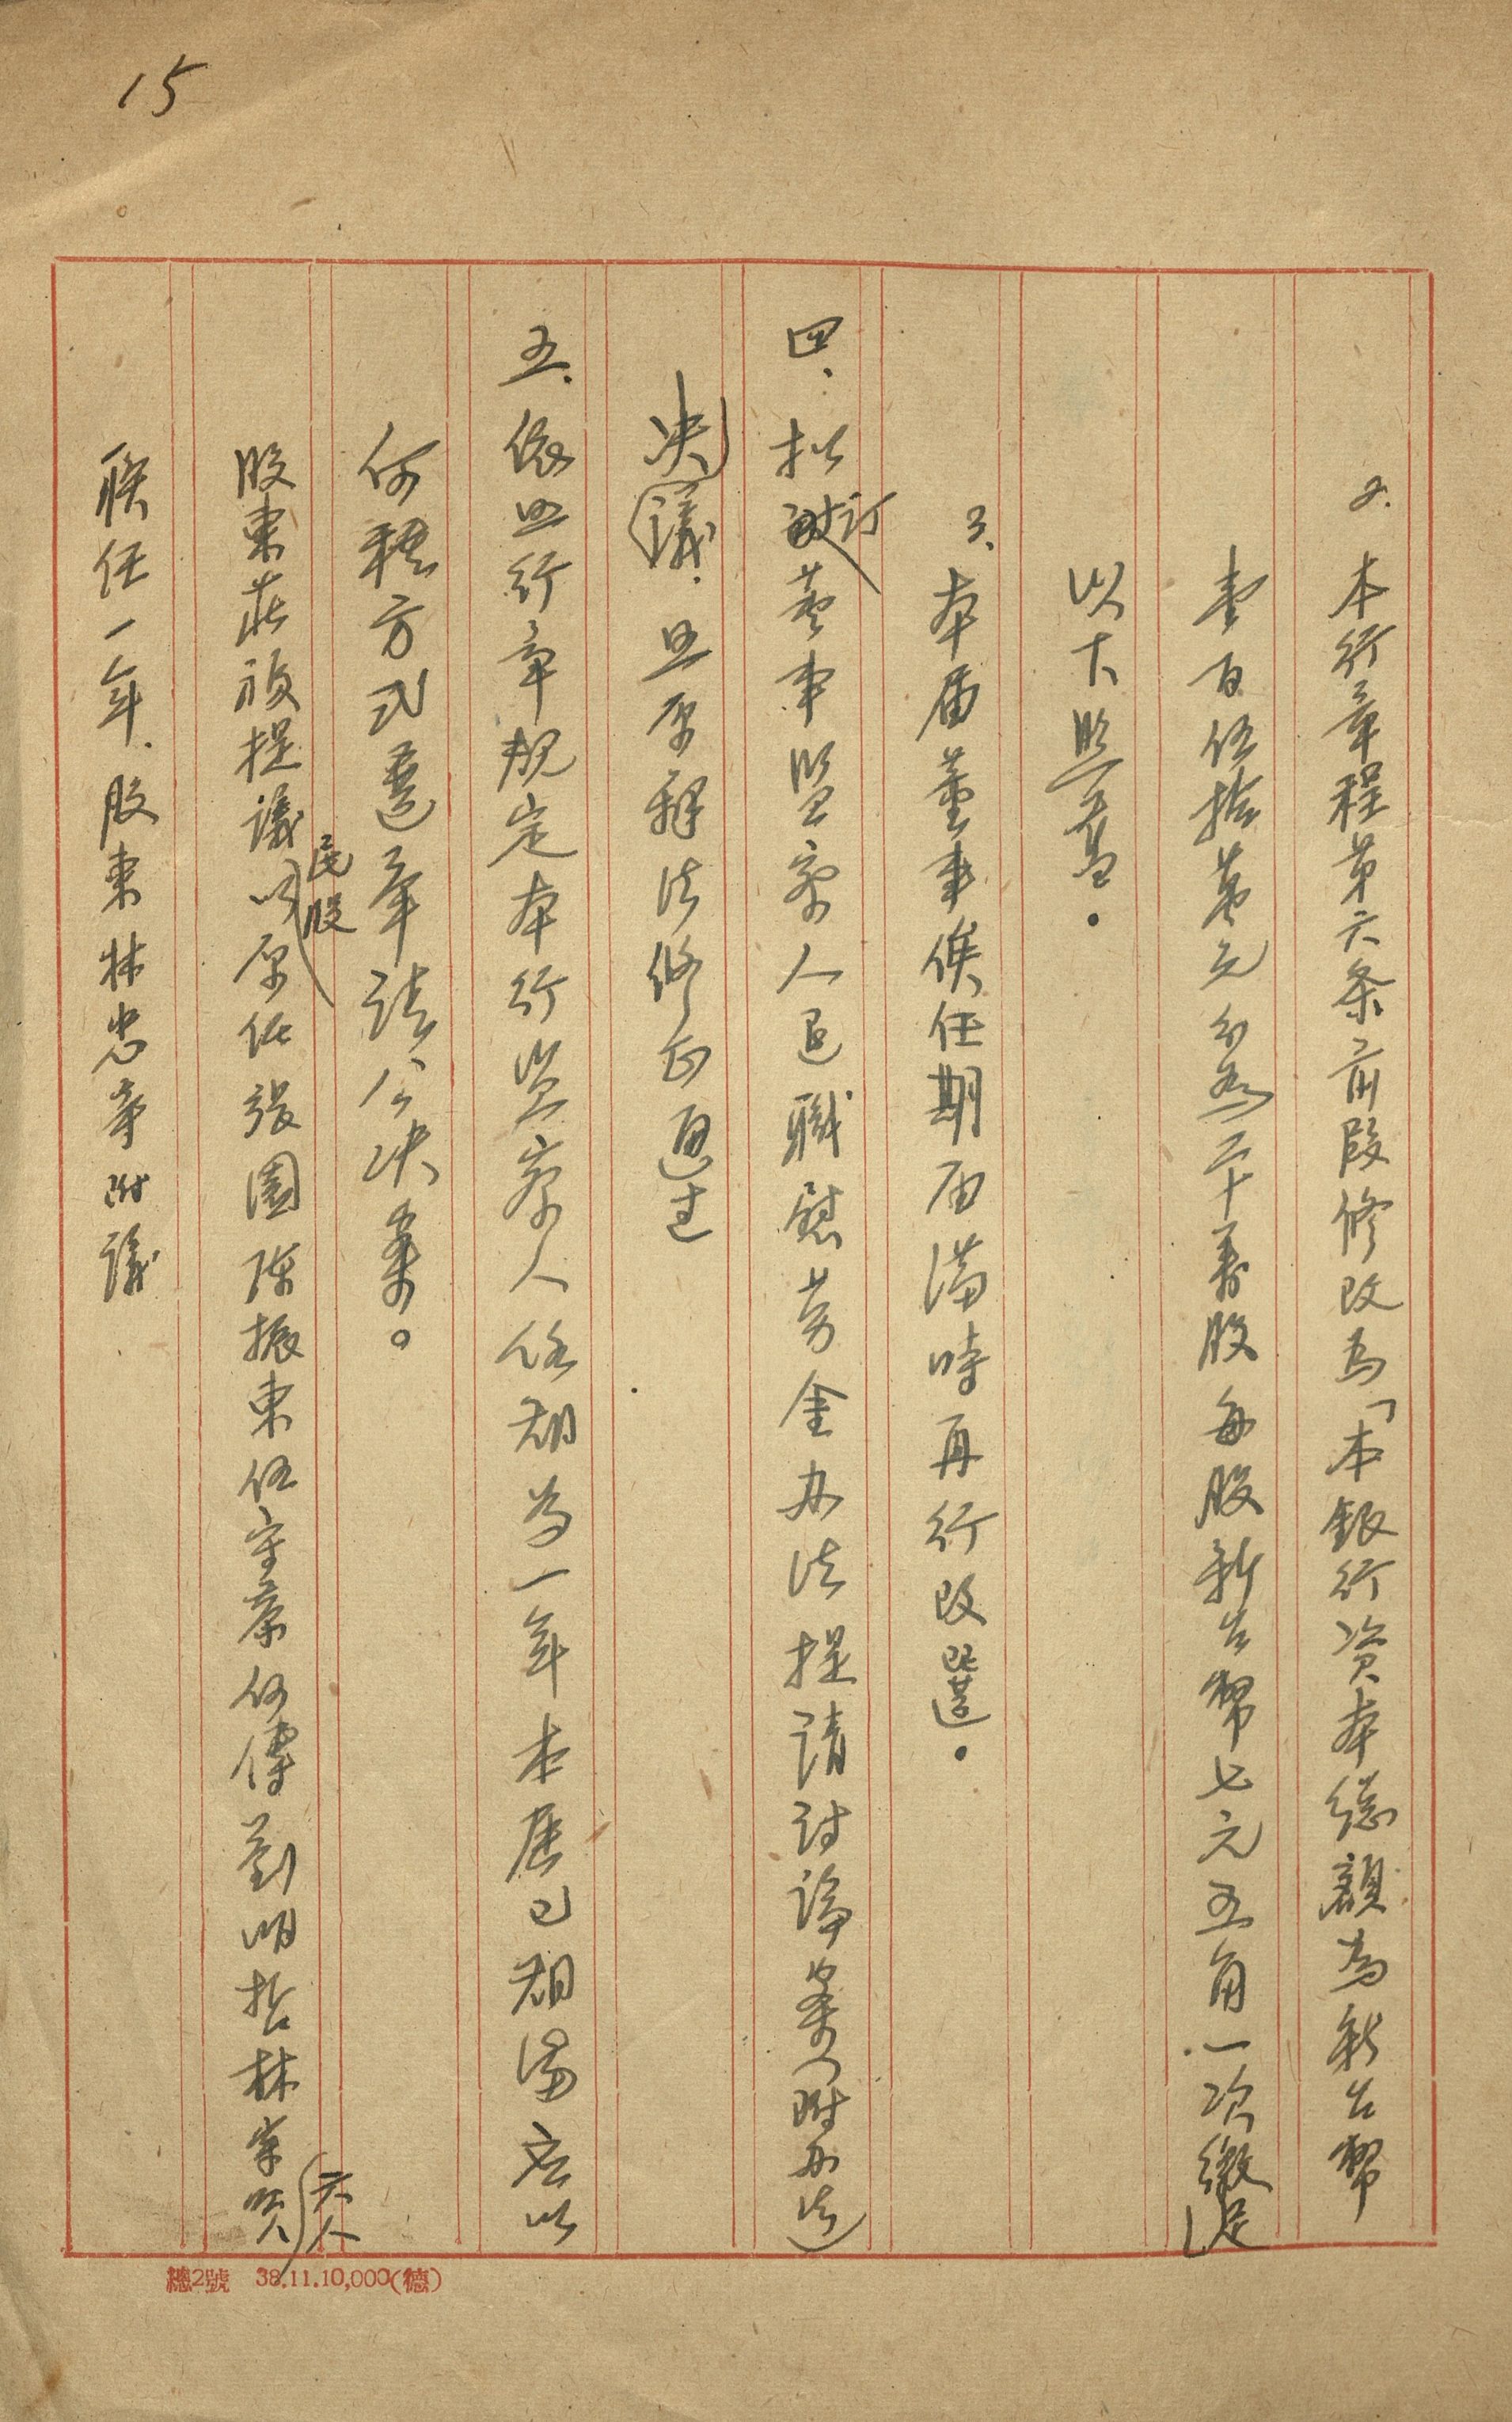 15
2. 本行章程第六条前段修改為「本銀行資本總額為新台幣
壹百伍拾萬元分為二十萬股每股新台幣七元五角一次繳足」
以下照舊.
3、本届董事俟任期届滿時再行改選.
四、拟訂董事監察人退職慰劳金办法提請討論案(附办法)
决議.照原辦法修正通过
五.依照行章規定本行监察人任期為一年本屆已期滿应以
何種方式選举請公决案。
股東莊 提議以民股原任張園陳振東伍守 何傳劉明哲林 六人
聯任一年.股東林忠等附議
總2號 38.11.10,000(德)